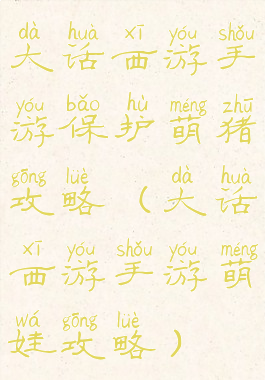 dà huà xī yóu shǒu
大话西游手
yóu bǎo hù méng zhū
游保护萌猪
gōng lüè dà huà
攻略（大话
xī yóu shǒu yóu méng
西游手游萌
wá gōng lüè
娃攻略）